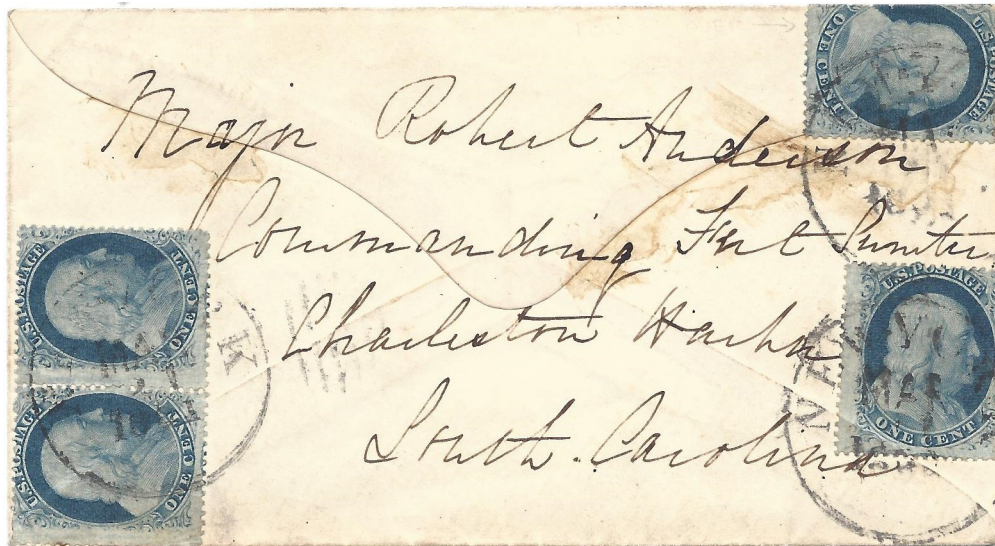 Major Robert Anderson
Commanding Fort Sumter
Charleston Harbor
South Carolina
U.S. POSTAGE
ONE CENT
U.S. POSTAGE
ONE CENT
U.S. POSTAGE
ONE CENT
U.S. POSTAGE
ONE CENT
NEW YO
MAR
K
10